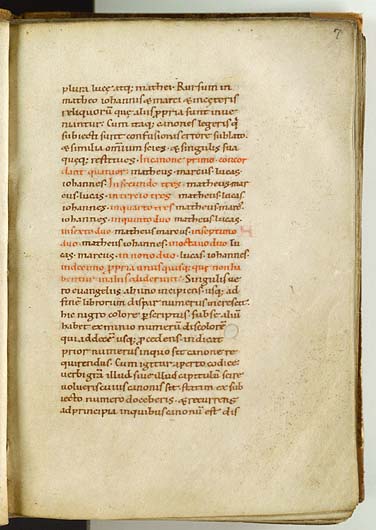 7
plura lucę atq; mathei. Rursum in
matheo iohannis & marci & incęteris
reliquorū quę aliis ppria sunt inve
niantur. Cum itaq; canones legeris q̄
subiecti sunt confusionis errore sublato.
& similia omnium scies. & singulis sua
quęq; restitues. In canone primo concor
dant quatuor. matheus. marcus. lucas.
iohannes. In secundo tres. matheus mar
cus. lucas. in tercio tres. matheus lucas
iohannes. in quarto tres matheus marc
iohannes. inquinto duo matheus lucas.
insexto duo. matheus marcus. inseptimo
duo. matheus iohannes. inoctavo duo lu
cas. marcus. in nono duo. lucas iohannes
indecimo ppria unusquisq; quę non ha
bentur in aliis ediderunt. Singulis ve
ro euangeliis ab uno incipiens usq; ad
finē librorum dispar numerus increscit.
hic nigro colore pscriptus sub se aliū
habet ex minio numerū discolorē
qui ad decē usq; pcedens indicat
prior numerus inquo sit canone re
quirendus. Cum igitur aperto codice
verbi gra illud sive illud capitulū scire
volueris cuius canonis sit statim ex sub
iecto numero doceberis. & recurrens
ad principia inquibus canonū est dis